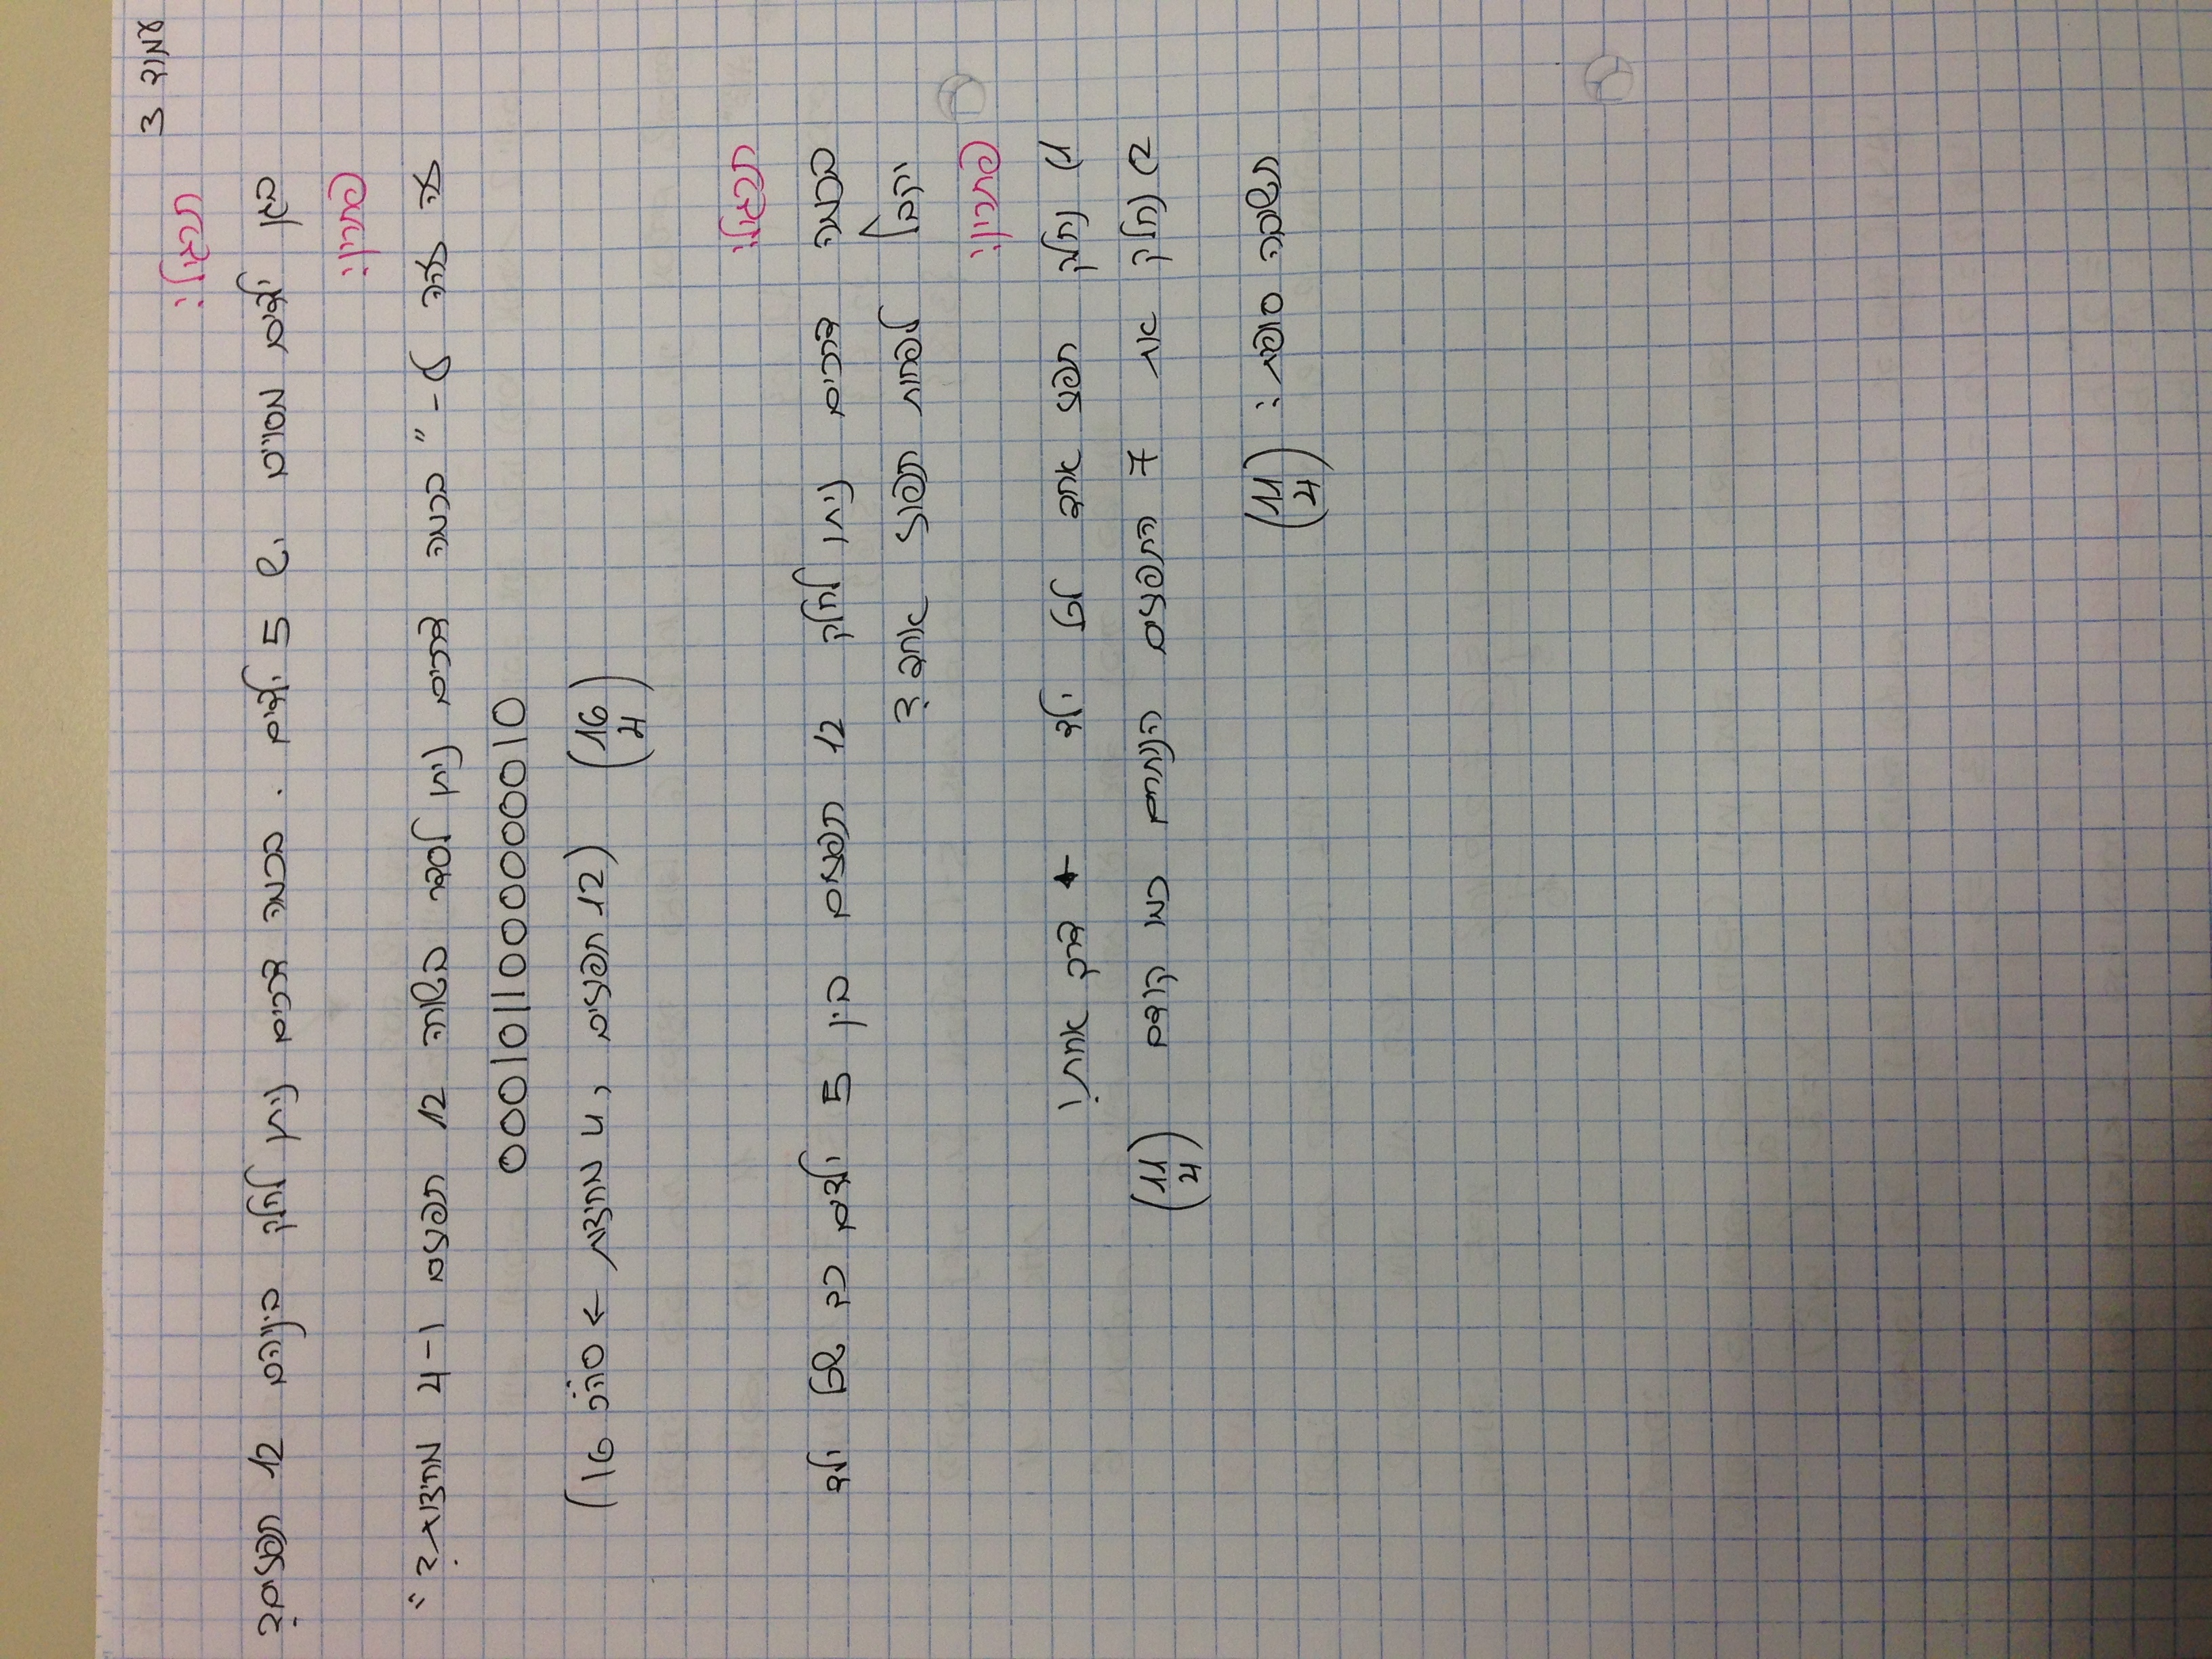 עמוד 3
תרגיל:
בגן ילדים מסויים יש 5 ילדים. בכמה דרכים ניתן לחלק ביניהם 12 תפוזים?
פתרון:
זה זהה ל- "בכמה דרכים ניתן לסדר בשורה 12 תפוזים ו-4 מחיצות?"
000|0||0000000|0
(16 4) (12 תפוזים, 4 מחיצות ← סה"כ 16)
תרגיל:
בכמה דרכים ניתן לחלק 12 תפוזים בין 5 ילדים כך שכל ילד
יקבל לפחות תפוז אחד?
פתרון:
1) נחלק תפוז אחד לכל ילד ← דרך אחת!
2) נחלק את 7 התפוזים הנותרים כמו קודם (11 4)
תשובה סופית: (11 4)